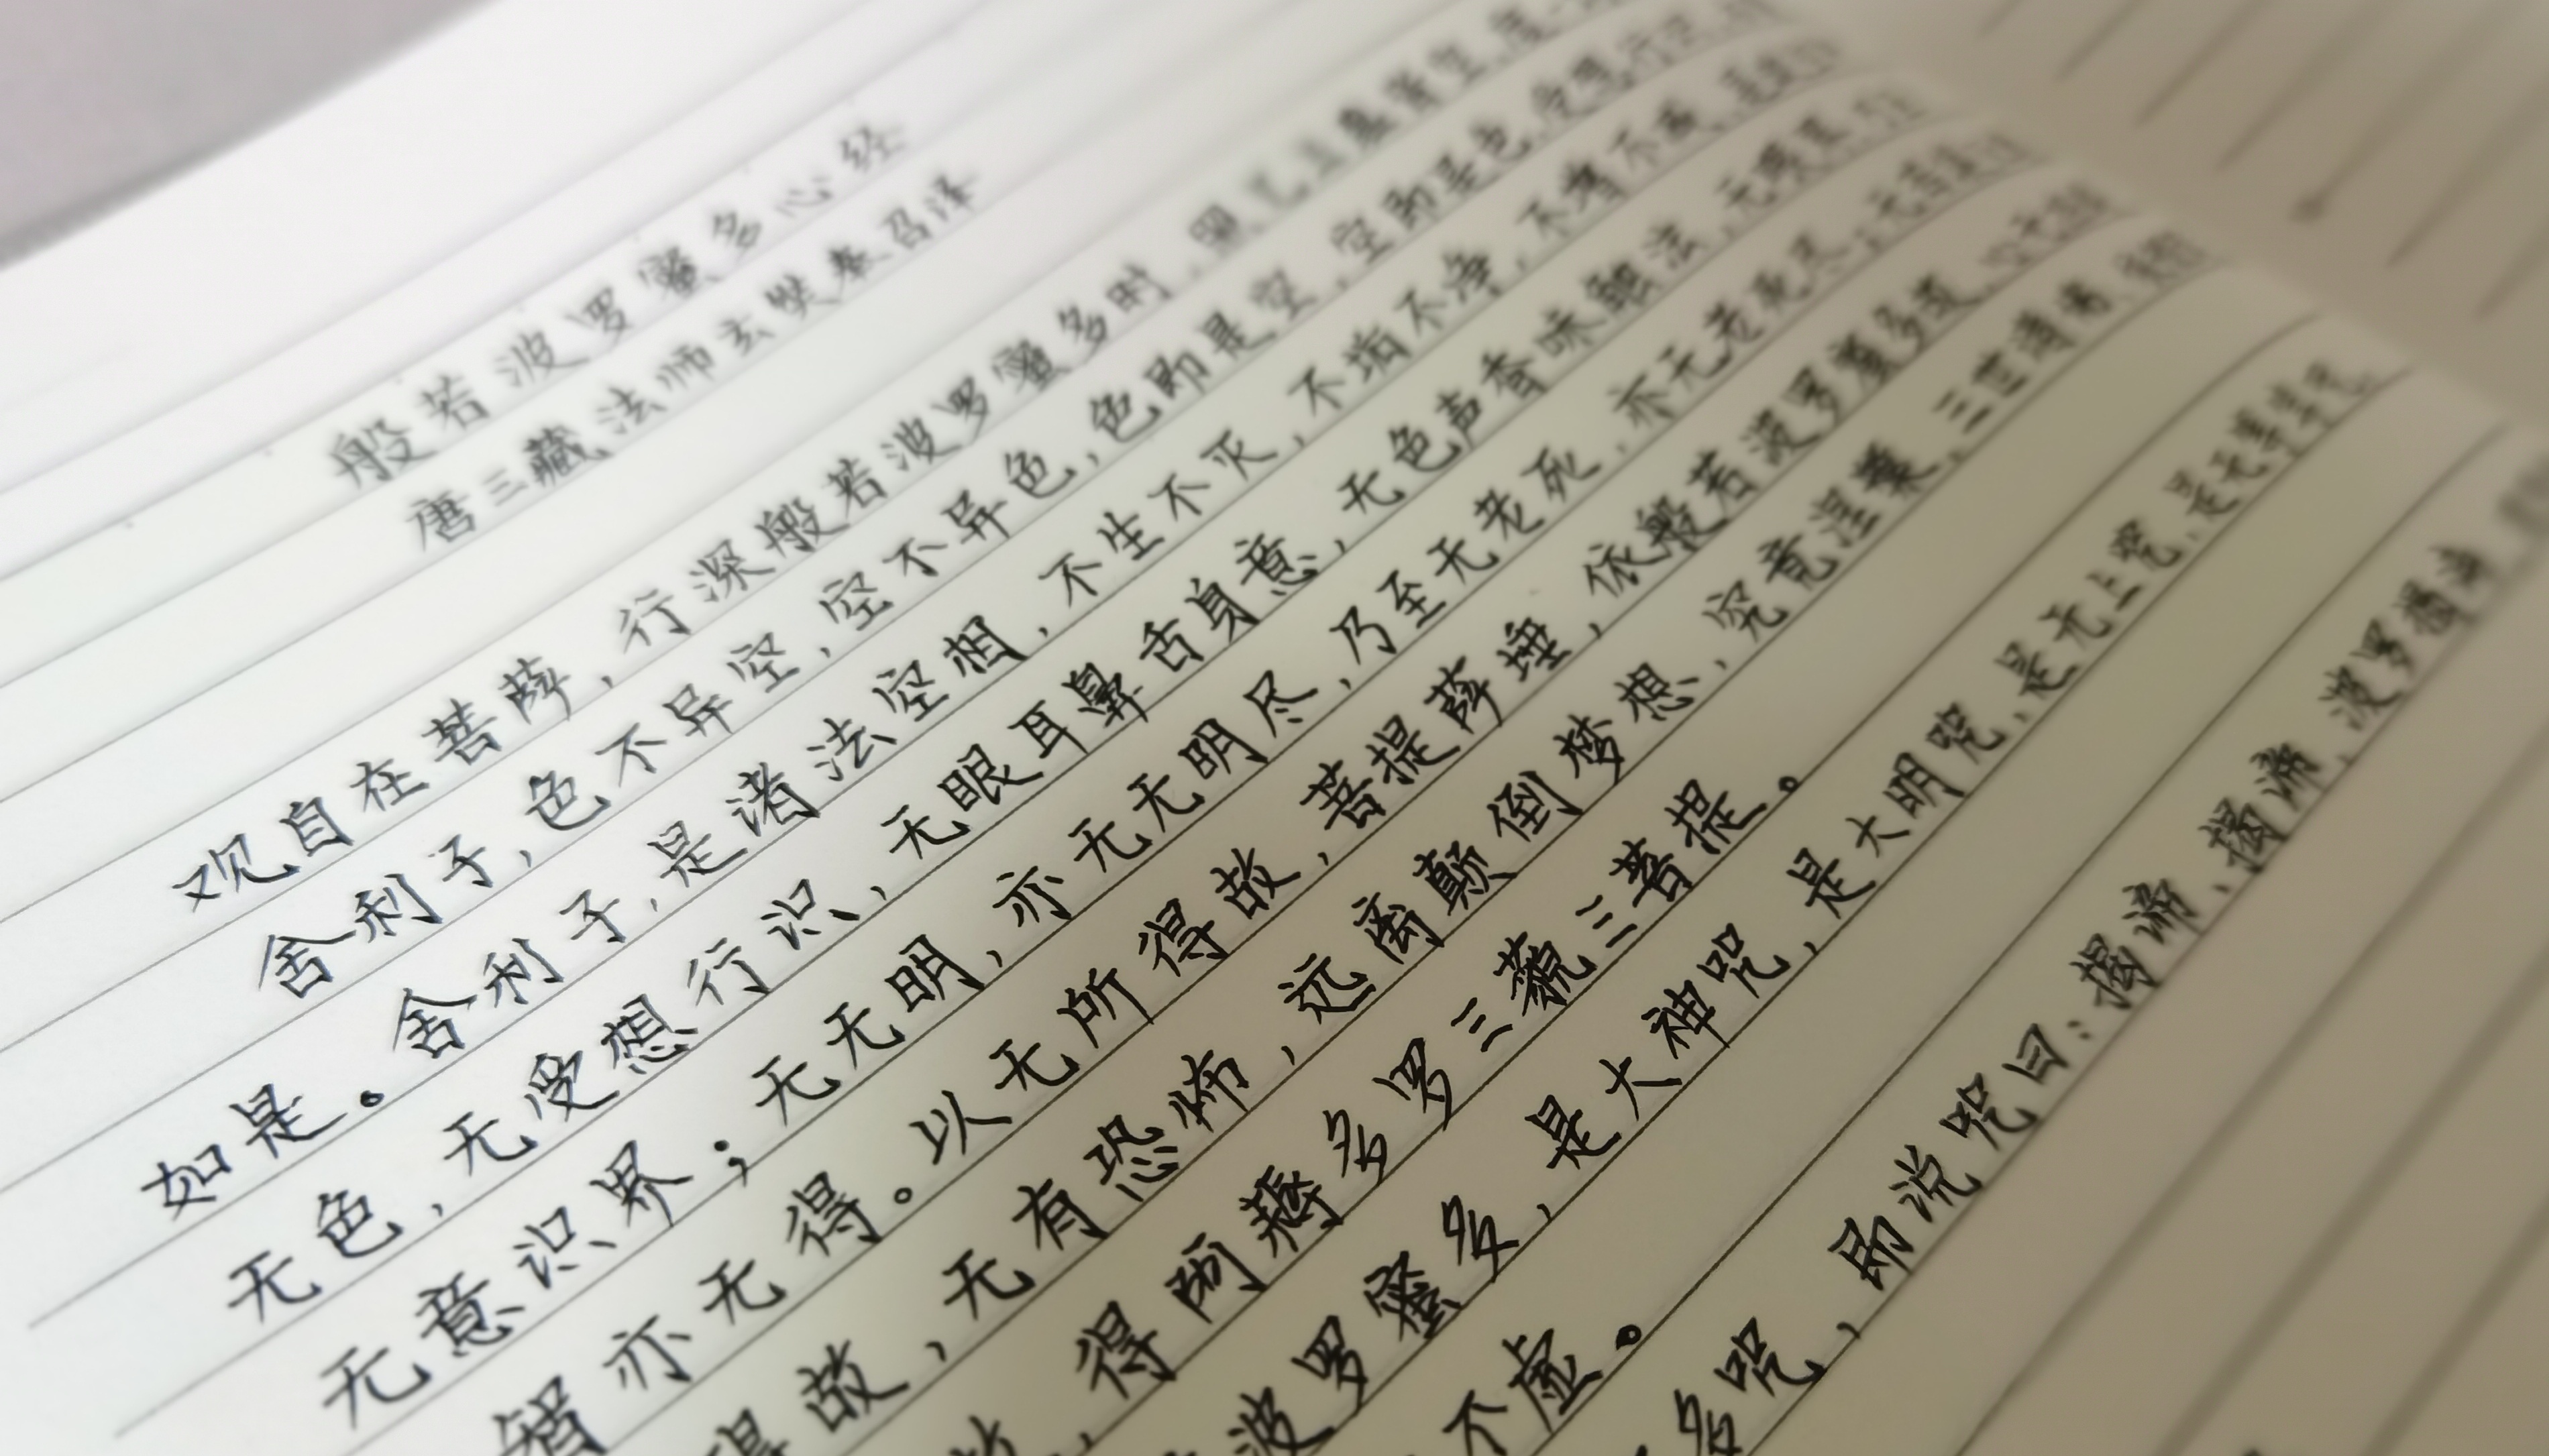 般若波罗蜜多心经
唐三藏法师玄奘奉召译
观自在菩萨，行深般若波罗蜜多时，照见五蕴皆空，度一
舍利子，色不异空，空不异色，色即是空，空即是色，受想行识，
如是。舍利子，是诸法空相，不生不灭，不垢不净，不增不减，是故
无色，无受想行识，无眼耳鼻舌身意，无色声香味触法，无眼界，
无意识界；无无明，亦无无明尽，乃至无老死，亦无老死尽；无苦集
智亦无得。以无所得故，菩提萨埵，依般若波罗蜜多故，心无
得故，无有恐怖，远离颠倒梦想，究竟涅槃，三世诸佛，
故，得阿耨多罗三藐三菩提。
波罗蜜多，是大神咒，是大明咒，是无上咒，是无等等咒，
不虚。
多咒，即说咒曰：揭谛，揭谛，波罗揭谛，